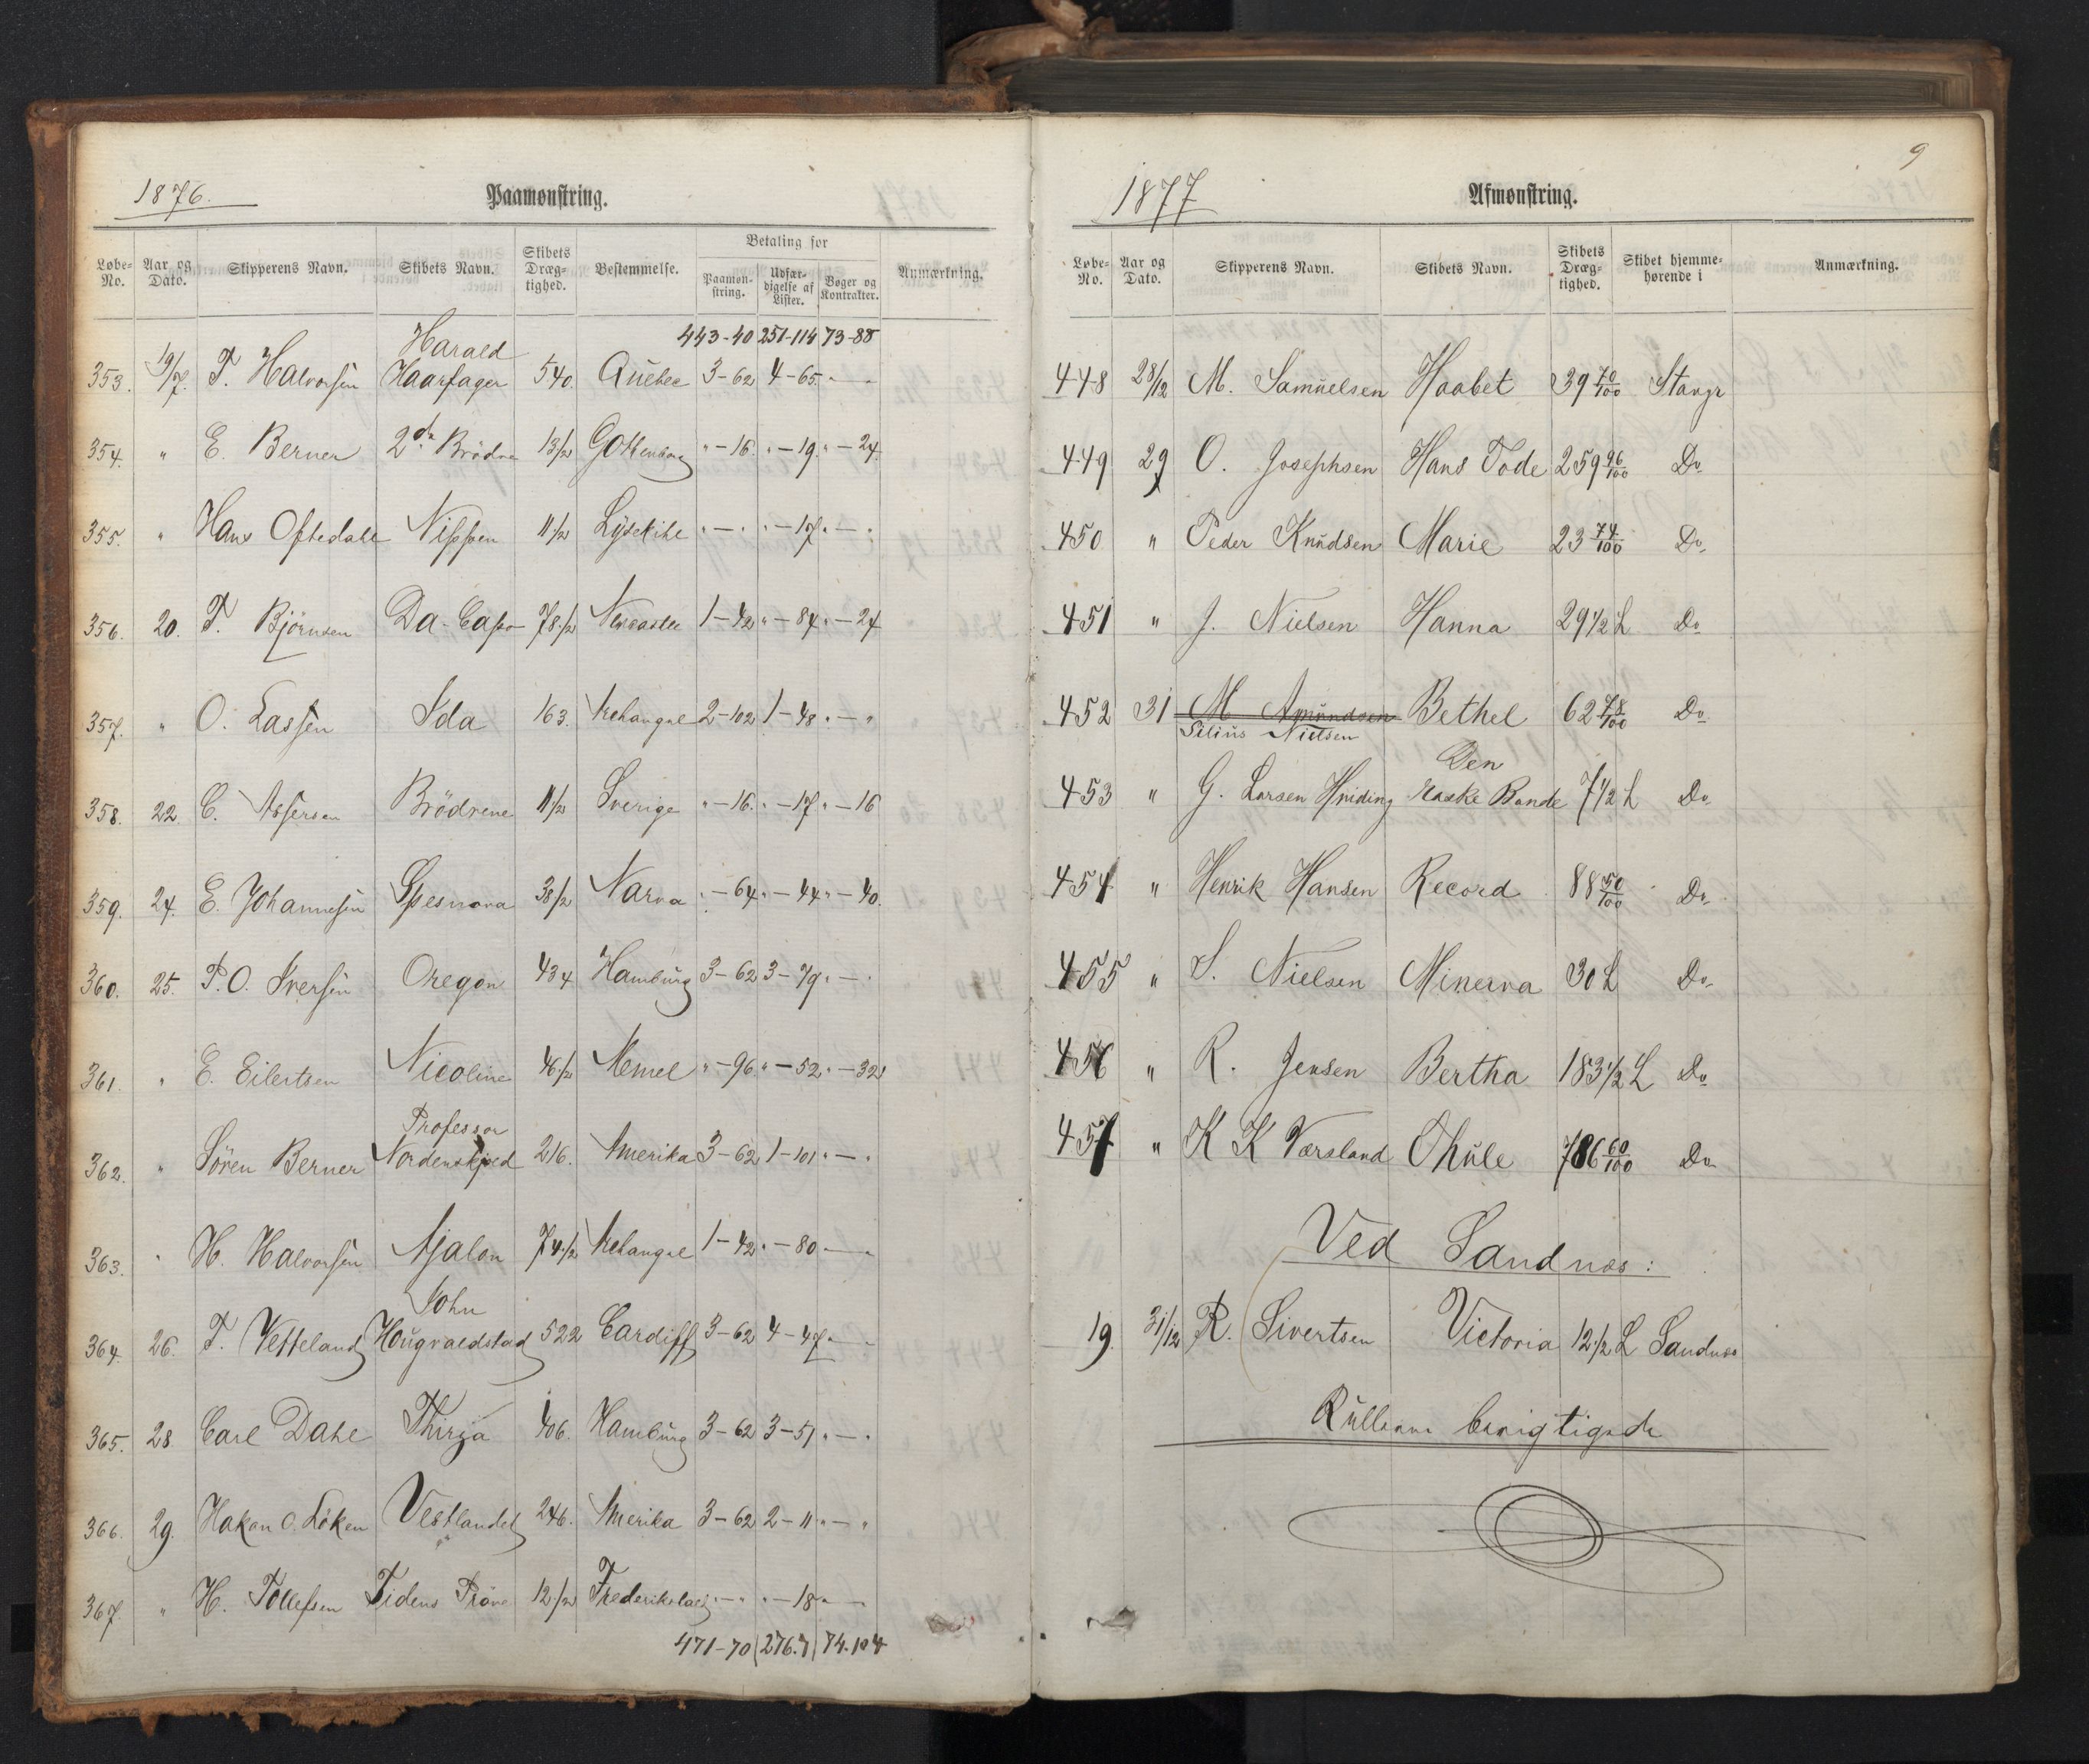 1876.
Paamønstring.
Løbe-No.
Aar og Dato.
Skipperens Navn.
Skibets Navn.
Skibets Dræg-tighed.
Bestemmelse.
Betaling for
Paamøn-string.
Udfær-digelse af Lister.
Bøger og Kontrakter.
Anmærkning.
443-40 251-114 73-88
Harald
353. 19/7. T. Halvorsen Haarfager 540. Quebec 3-62 4-65. " - "
354. " E. Berner 2de Brödre 13 1/2 Gottenborg " - 16. " - 19. " - 24.
355. " Hans Oftedahl Nissen 11 1/2 Lysekihl " - " " - 17. " - "
356. 20. T. Björnsen Da-Capo 78 1/2 Newcastle 1-42 " - 84. " - 24
357. " O. Lassen Ida 163. Archangel 2-102 1-48. " - "
358. 22. C. Assersen Brödrene 11 1/2 Sverige " - 16. " - 17. " - 16
359. 24. E. Johannesen Spesnova 38 1/2 Narva " - 64. " - 44. " - 40.
360. 25. P. O. Iversen Oregon 434 Hamburg 3-62 3-79. " - "
361. " E. Eilertsen Nicoline 46 1/2 Memel " - 96 " - 52. " - 32
Professor
362. " Sören Berner Nordenskjöld 216. Amerika 3-62 1-101. " - "
363. " H. Halvorsen Ajalon 74 1/2 Archangel 1-42. " - 80 " - "
John
364. 26. T. Vetteland Hougvaldstad 522 Cardiff 3-62 4-47. " - "
365. 28 Carl Dahl Thirza 406. Hamburg 3-62 3-51 " - "
366. 29. Hakon O. Löken Vestlandet 246. Amerika 3-62 2-11. " - "
367. " H. Tollefsen Tidens Pröve 12 1/2 Frederikshald " - " " - 18 " - "
471-70 276.7 74.104
9
1877
Afmønstring.
Løbe-No.
Aar og Dato.
Skipperens Navn.
Skibets Navn.
Skibets Dræg-tighed.
Skibet hjemme-hørende i
Anmærkning.
448 28/12 M. Samuelsen Haabet 39 70/100 Stavgr
449 29 O. Josephsen Hans Tode 259 96/100 Do
450 " Peder Knudsen Marie 23 74/100 Do
451 " J. Nielsen Hanna 29 1/2 L Do
452 31 M Amundsen Bethel 62 78/100 Do
Silius Nielsen
Den
453 " G. Larsen Hviding raske Bonde 7 1/2 L Do
454 " Henrik Hansen Record 88 50/100 Do
455 " S. Nielsen Minerva 30 L Do
456 " R. Jensen Bertha 183 1/2 L Do
457 " K K Værsland Thule 786 60/100 Do
Ved Sandnæs:
19. 31/12 R. Sivertsen Victoria 12 1/2 L Sandnæs
Rullerne berigtigede